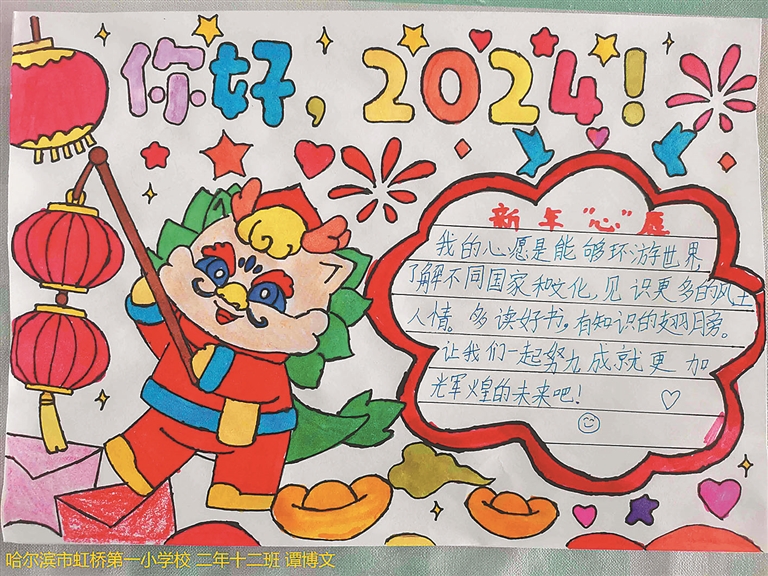 你好，2024！
新年“心”愿
我的心愿是能够环游世界，
了解不同国家和文化，见识更多的风土
人情。多读好书。有知识的翅膀。
让我们一起努力成就更加
光辉煌的未来吧！
哈尔滨市虹桥第一小学校 二年十二班 谭博文